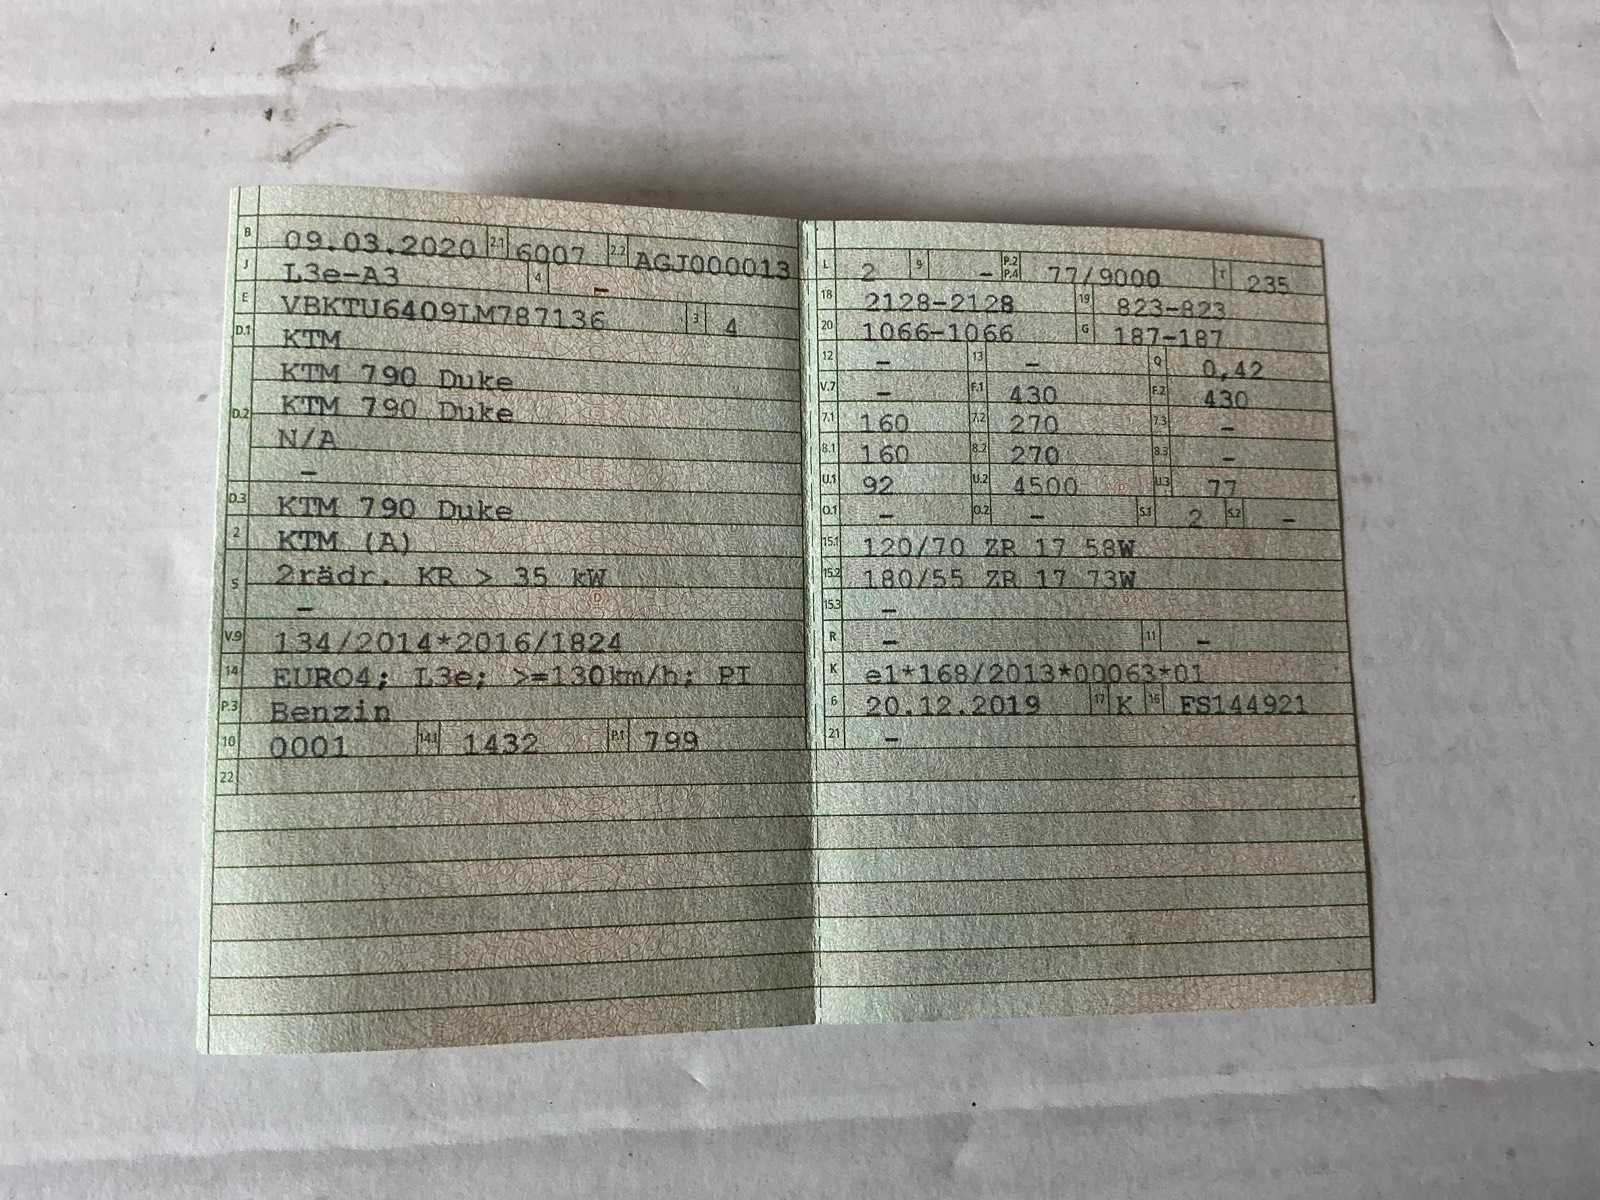 B 09.03.2020 2.1 6007 2.2 AGJ000013
J L3e-A3 4 –
E VBKTU6409LM787136 3 4
D.1 KTM
KTM 790 Duke
D.2 KTM 790 Duke
N/A
–
D.3 KTM 790 Duke
2 KTM (A)
5 2rädr. KR > 35 kW
–
V.9 134/2014*2016/1824
14 EURO4; L3e; >=130km/h; PI
P.3 Benzin
10 0001 14.1 1432 P.1 799
22
L 2 9 – P.2 P.4 77/9000 T 235
18 2128-2128 19 823-823
20 1066-1066 G 187-187
12 – 13 – Q 0,42
V.7 – F.1 430 F.2 430
7.1 160 7.2 270 7.3 –
8.1 160 8.2 270 8.3 –
U.1 92 U.2 4500 U.3 77
O.1 – O.2 – S.1 2 S.2 –
15.1 120/70 ZR 17 58W
15.2 180/55 ZR 17 73W
15.3 –
R – 11 –
K e1*168/2013*00063*01
6 20.12.2019 17 K 16 FS144921
21 –